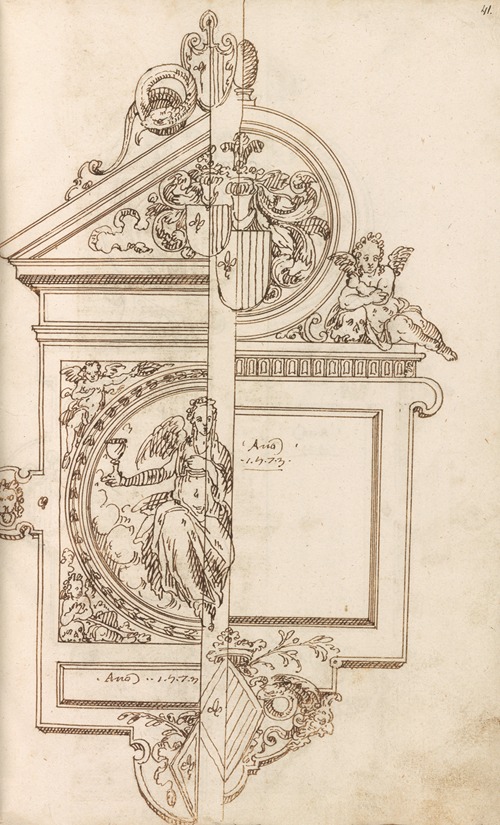 41.
Año
.1.5.7.3.
. Año .. 1.5.7.3